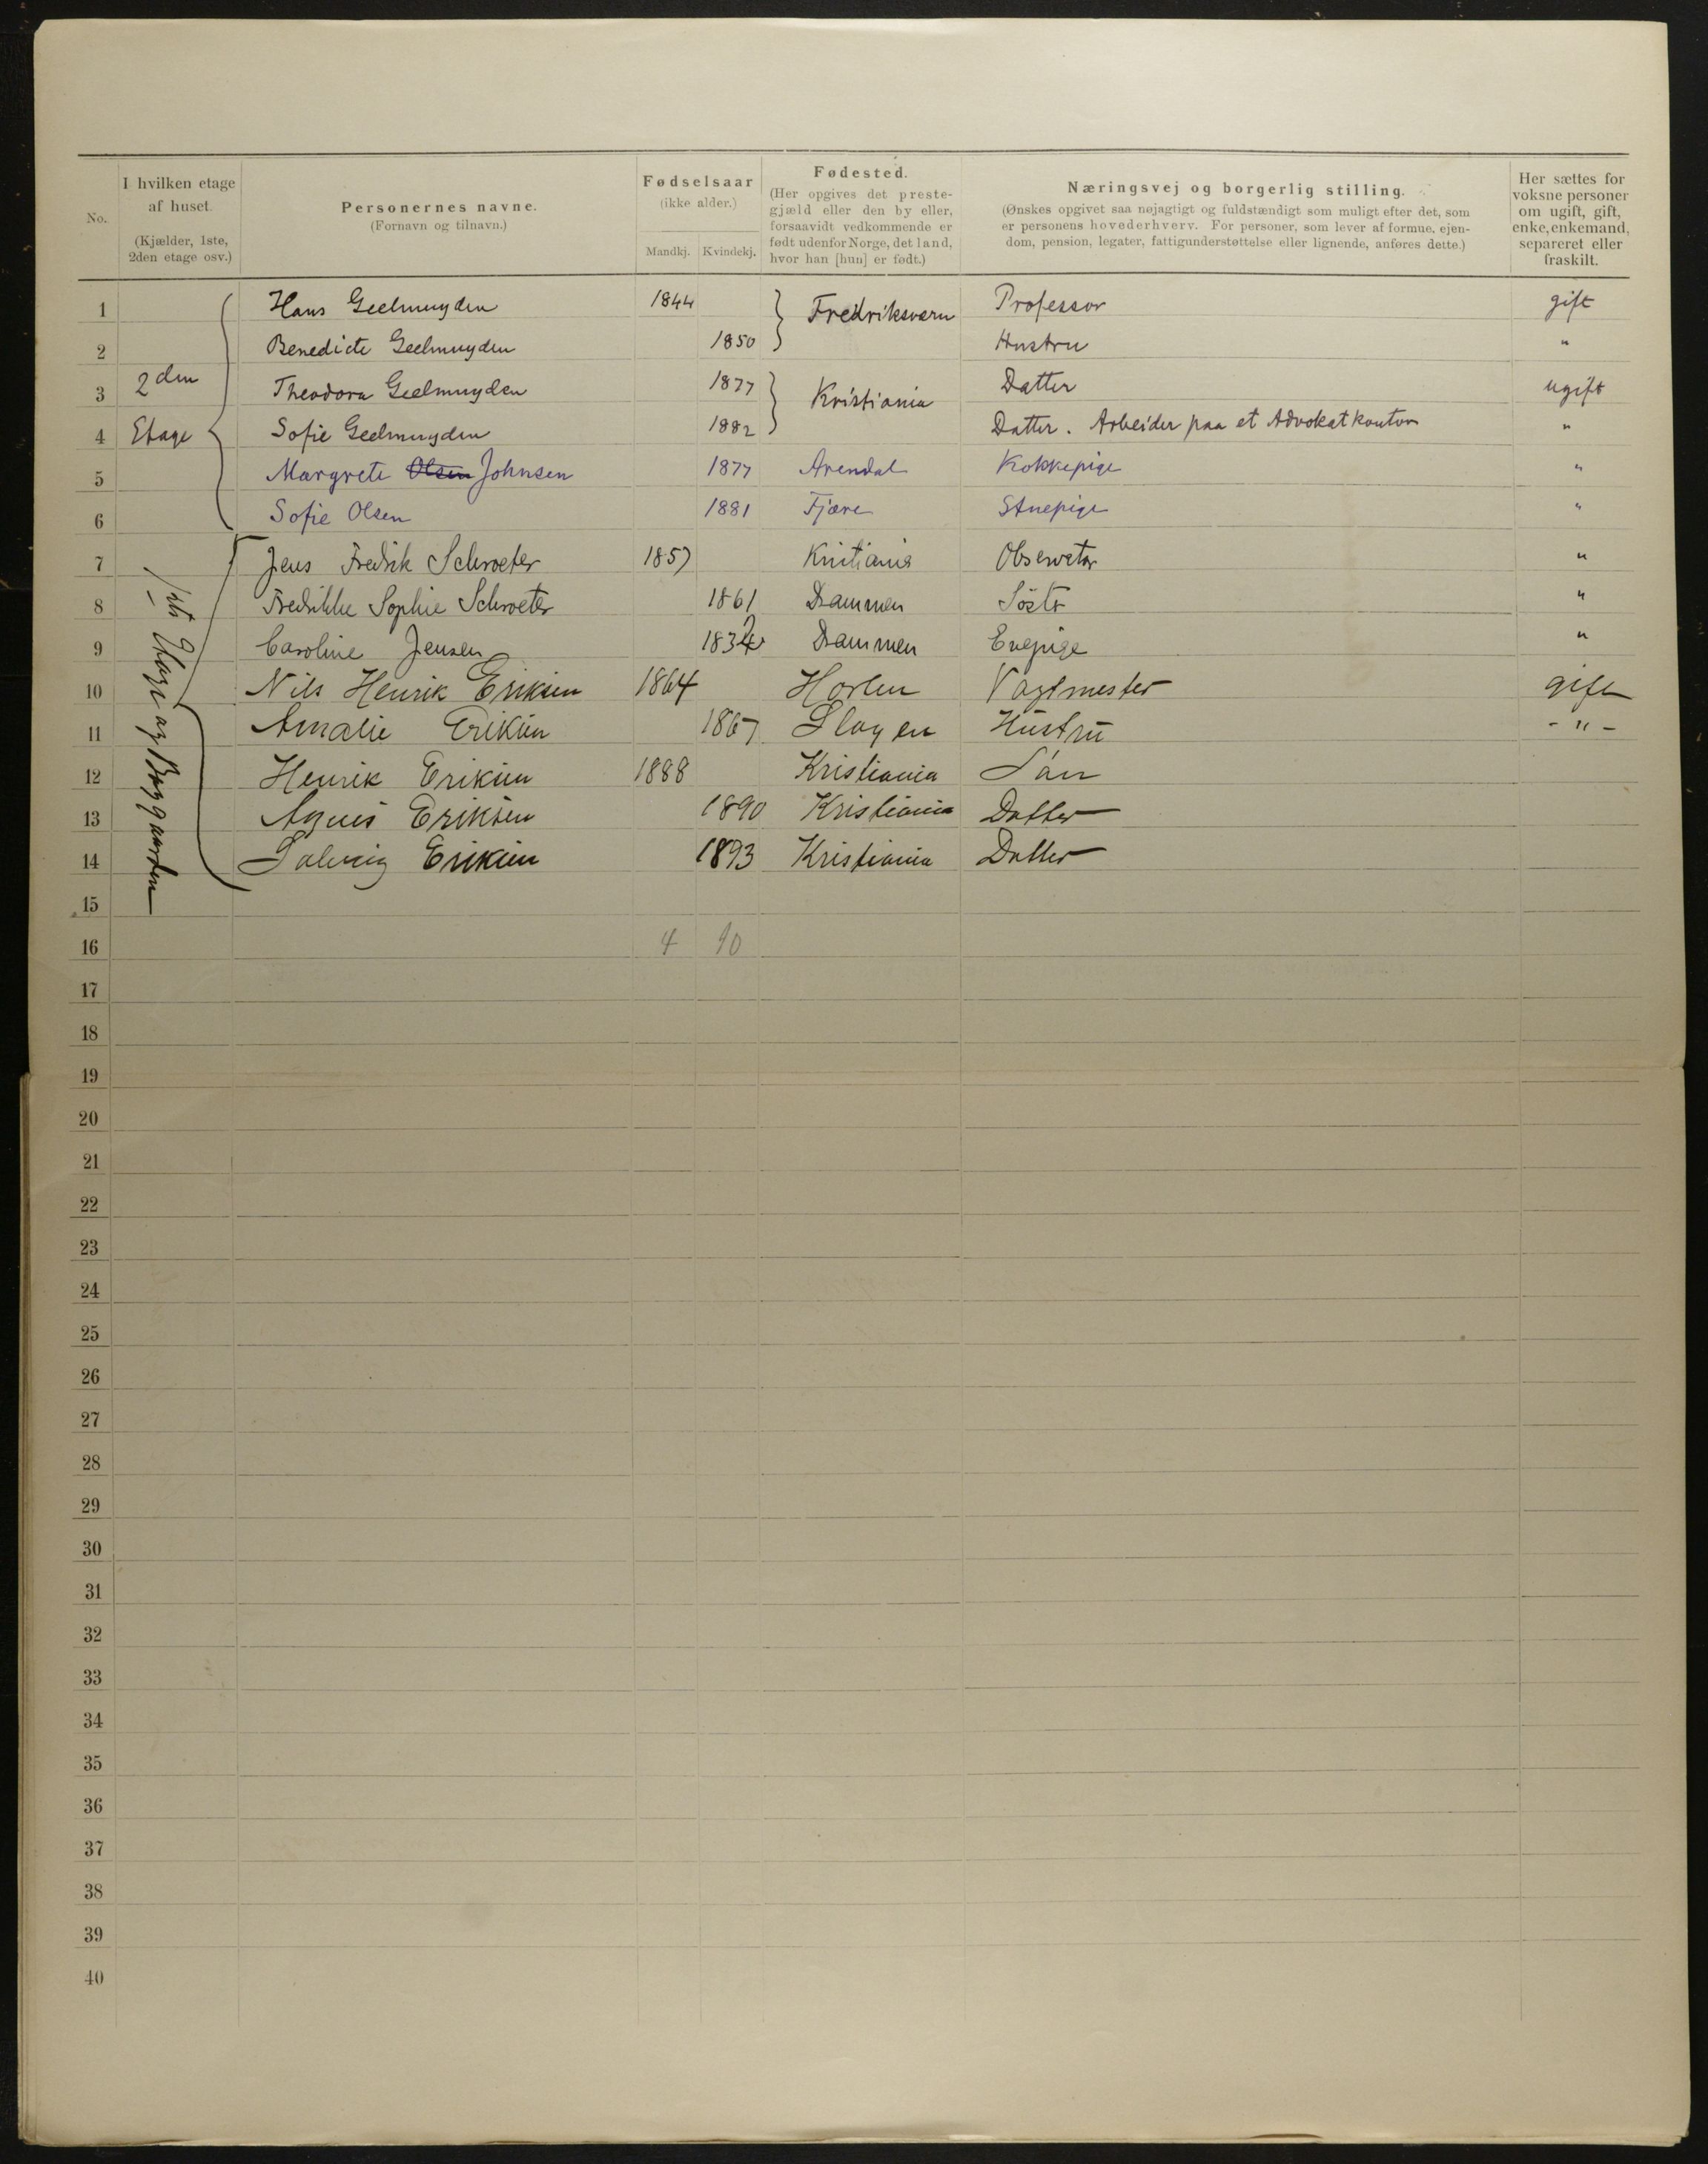 No.
I hvilken etage af huset.
(Kjælder, 1ste, 2den etage osv.)
Personernes navne.
(Fornavn og tilnavn.)
Fødselsaar
(ikke alder.)
Mandkj. Kvindekj.
Fødested.
(Her opgives det prestegjæld eller den by eller, forsaavidt vedkommende er født udenfor Norge, det land, hvor han [hun] er født.)
Næringsvej og borgerlig stilling.
(Ønskes opgivet saa nøjagtigt og fuldstændigt som muligt efter det, som er personens hovederhverv. For personer, som lever af formue, ejendom, pension, legater, fattigunderstøttelse eller lignende, anføres dette.)
Her sættes for voksne personer om ugift, gift, enke, enkemand, separeret eller fraskilt.
1 Hans Geelmuyden 1844 Fredriksværn Professor gift
2 Benedicte Geelmuyden 1850 Hustru "
3 2den Theodora Geelmuyden 1877 Kristiania Datter ugift
4 Etage Sofie Geelmuyden 1882 Datter. Arbeider paa et Advokatkontor "
5 Margrete Olsen Johnsen 1877 Arendal Kokkepige "
6 Sofie Olsen 1881 Fjære Stuepige "
1ste Etage og Byggaarden
7 Jens Fredrik Schroeter 1857 Kristiania Observator "
8 Fredrikke Sophie Schroeter 1861 Drammen Søster "
9 Caroline Jensen Drammen Enepige "
10 Nils Henrik Eriksen 1864 Horten Vagtmester gift
11 Amalie Eriksen 1867 Slagen Hustru - " -
12 Henrik Eriksen 1888 Kristiania Søn
13 Agnes Eriksen 1890 Kristiania Datter
14 Solveig Eriksen 1893 Kristiania Datter
15
16 4 10
17
18
19
20
21
22
23
24
25
26
27
28
29
30
31
32
33
34
35
36
37
38
39
40